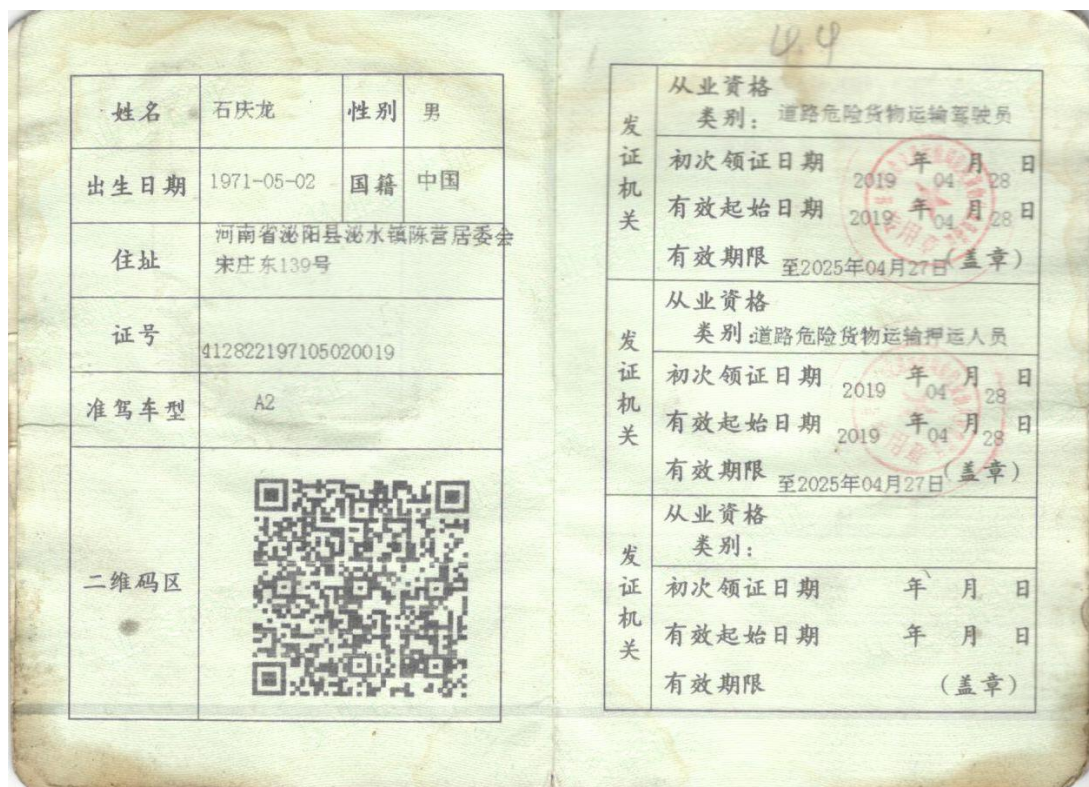 姓名 石庆龙 性别 男
出生日期 1971-05-02 国籍 中国
住址 河南省泌阳县泌水镇陈营居委会
宋庄东139号
证号 412822197105020019
准驾车型 A2
二维码区
发证机关
从业资格
类别: 道路危险货物运输驾驶员
初次领证日期 2019 年 04 月 28 日
有效起始日期 2019 年 04 月 28 日
有效期限 至2025年04月27日 (盖章)
专用章
发证机关
从业资格
类别:道路危险货物运输押运人员
初次领证日期 2019 年 04 月 28 日
有效起始日期 2019 年 04 月 28 日
有效期限 至2025年04月27日 (盖章)
发证机关
从业资格
类别:
初次领证日期 年 月 日
有效起始日期 年 月 日
有效期限 (盖章)